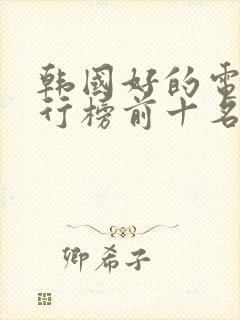 韩国好的电
行榜前十名
卿希子